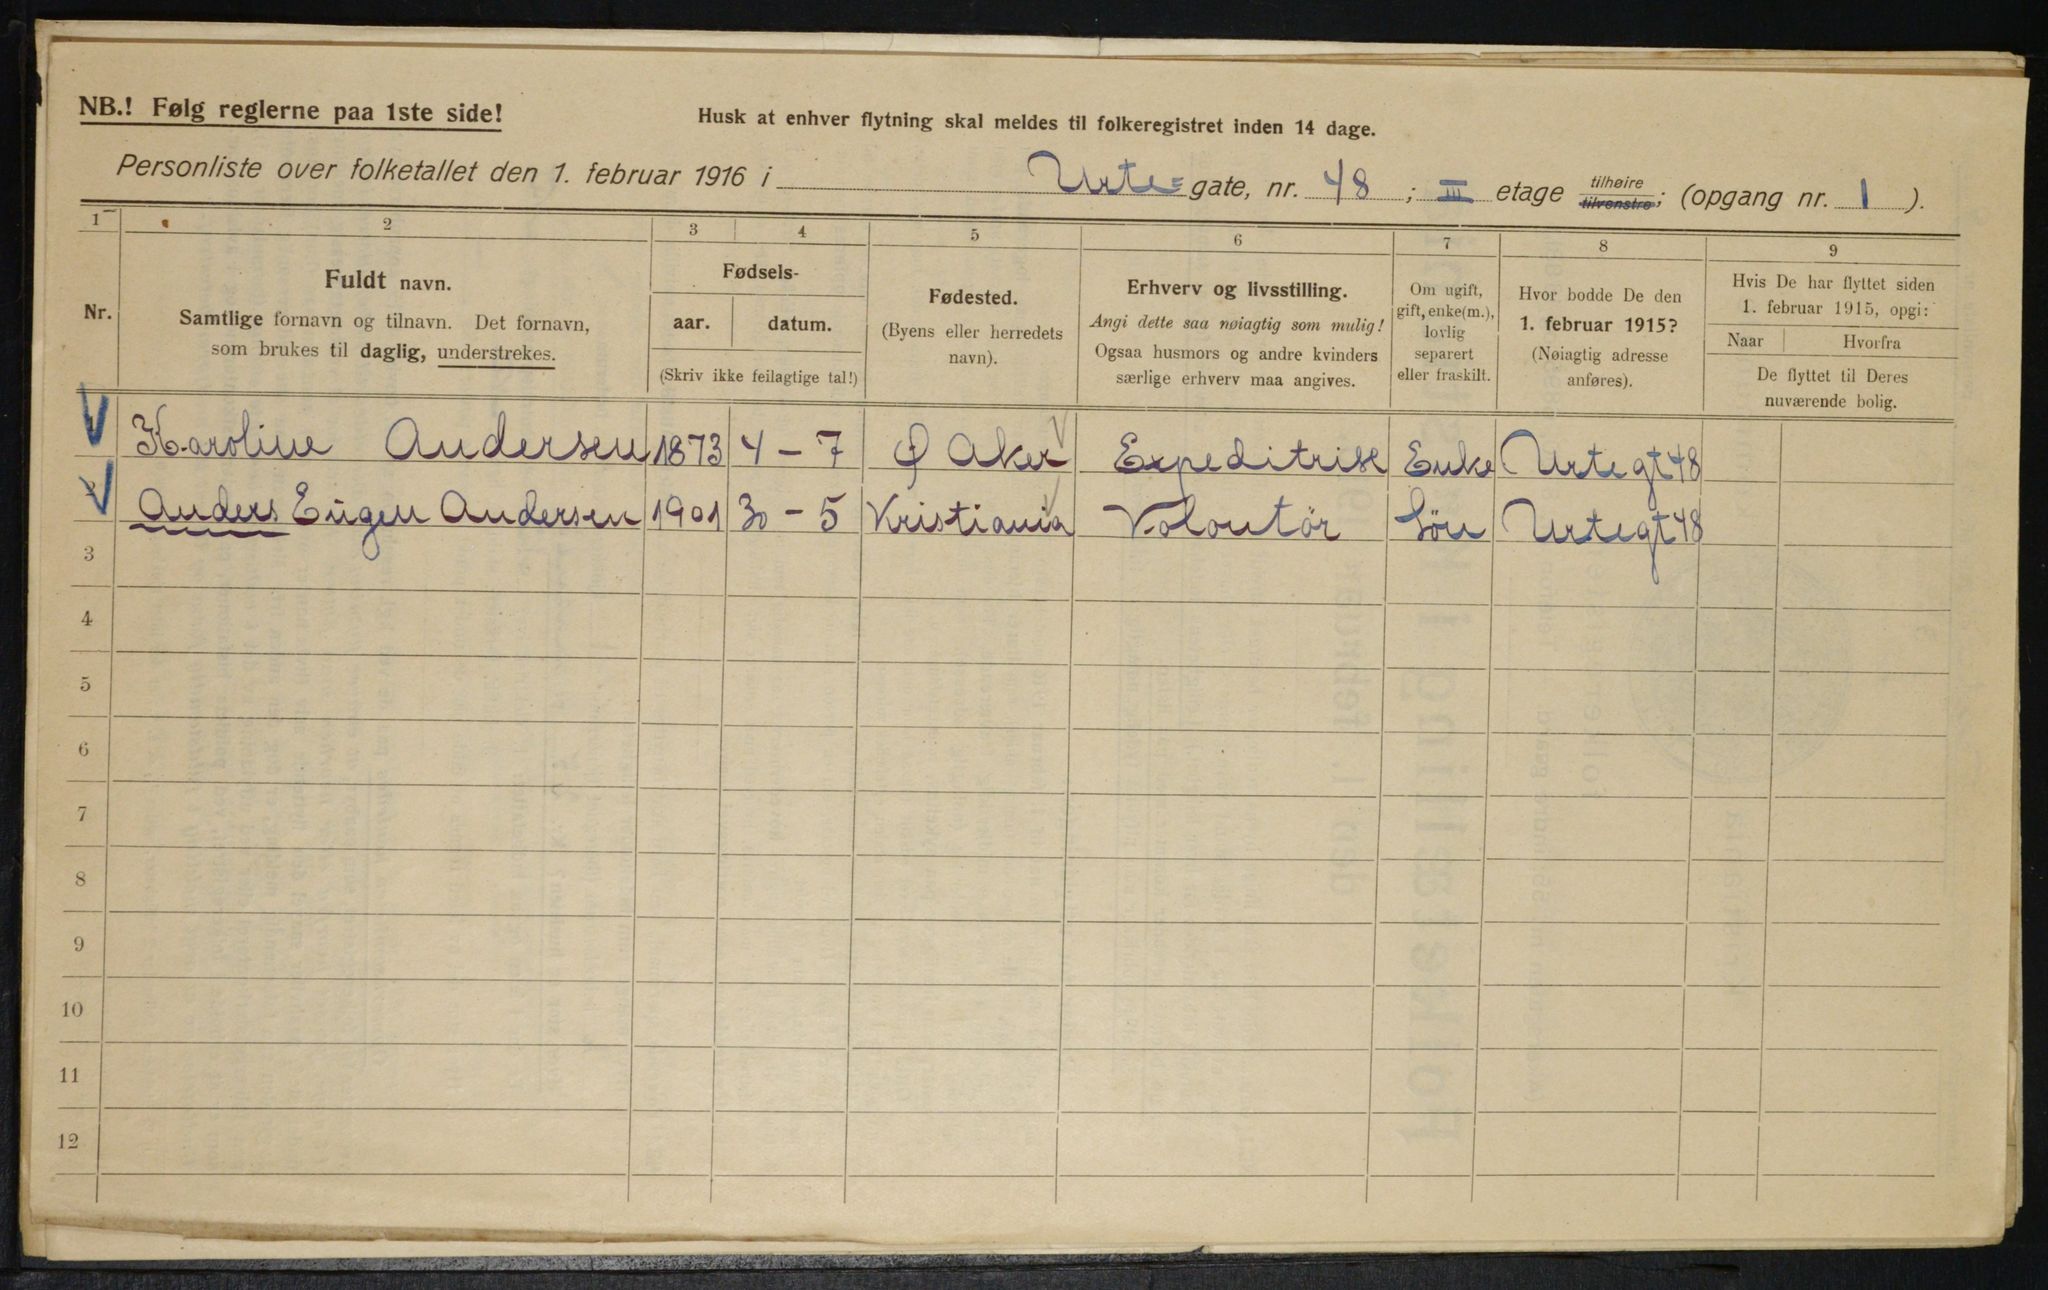 NB.! Følg reglerne paa 1ste side!
Husk at enhver flytning skal meldes til folkeregistret inden 14 dage.
Personliste over folketallet den 1. februar 1916 i Urte= gate, nr. 48; III etage tilhøire tilvenstre; (opgang nr. 1).
1 2 3 4 5 6 7 8 9
Nr.
Fuldt navn.
Samtlige fornavn og tilnavn. Det fornavn,
som brukes til daglig, understrekes.
Fødsels-
aar. datum.
(Skriv ikke feilagtige tal!)
Fødested.
(Byens eller herredets
navn).
Erhverv og livsstilling.
Angi dette saa nøiagtig som mulig!
Ogsaa husmors og andre kvinders
særlige erhverv maa angives.
Om ugift,
gift, enke(m.),
lovlig
separert
eller fraskilt.
Hvor bodde De den
1. februar 1915?
(Nøiagtig adresse
anføres).
Hvis De har flyttet siden
1. februar 1915, opgi:
Naar Hvorfra
De flyttet til Deres
nuværende bolig.
Karoline Andersen 1873 4-7 Ø Aker Expeditrise Enke Urtegt 48
2 Anders Eugen Andersen 1901 30-5 Kristiania Volontör Sön Urtegt 48
3
4
5
6
7
8
9
10
11
12